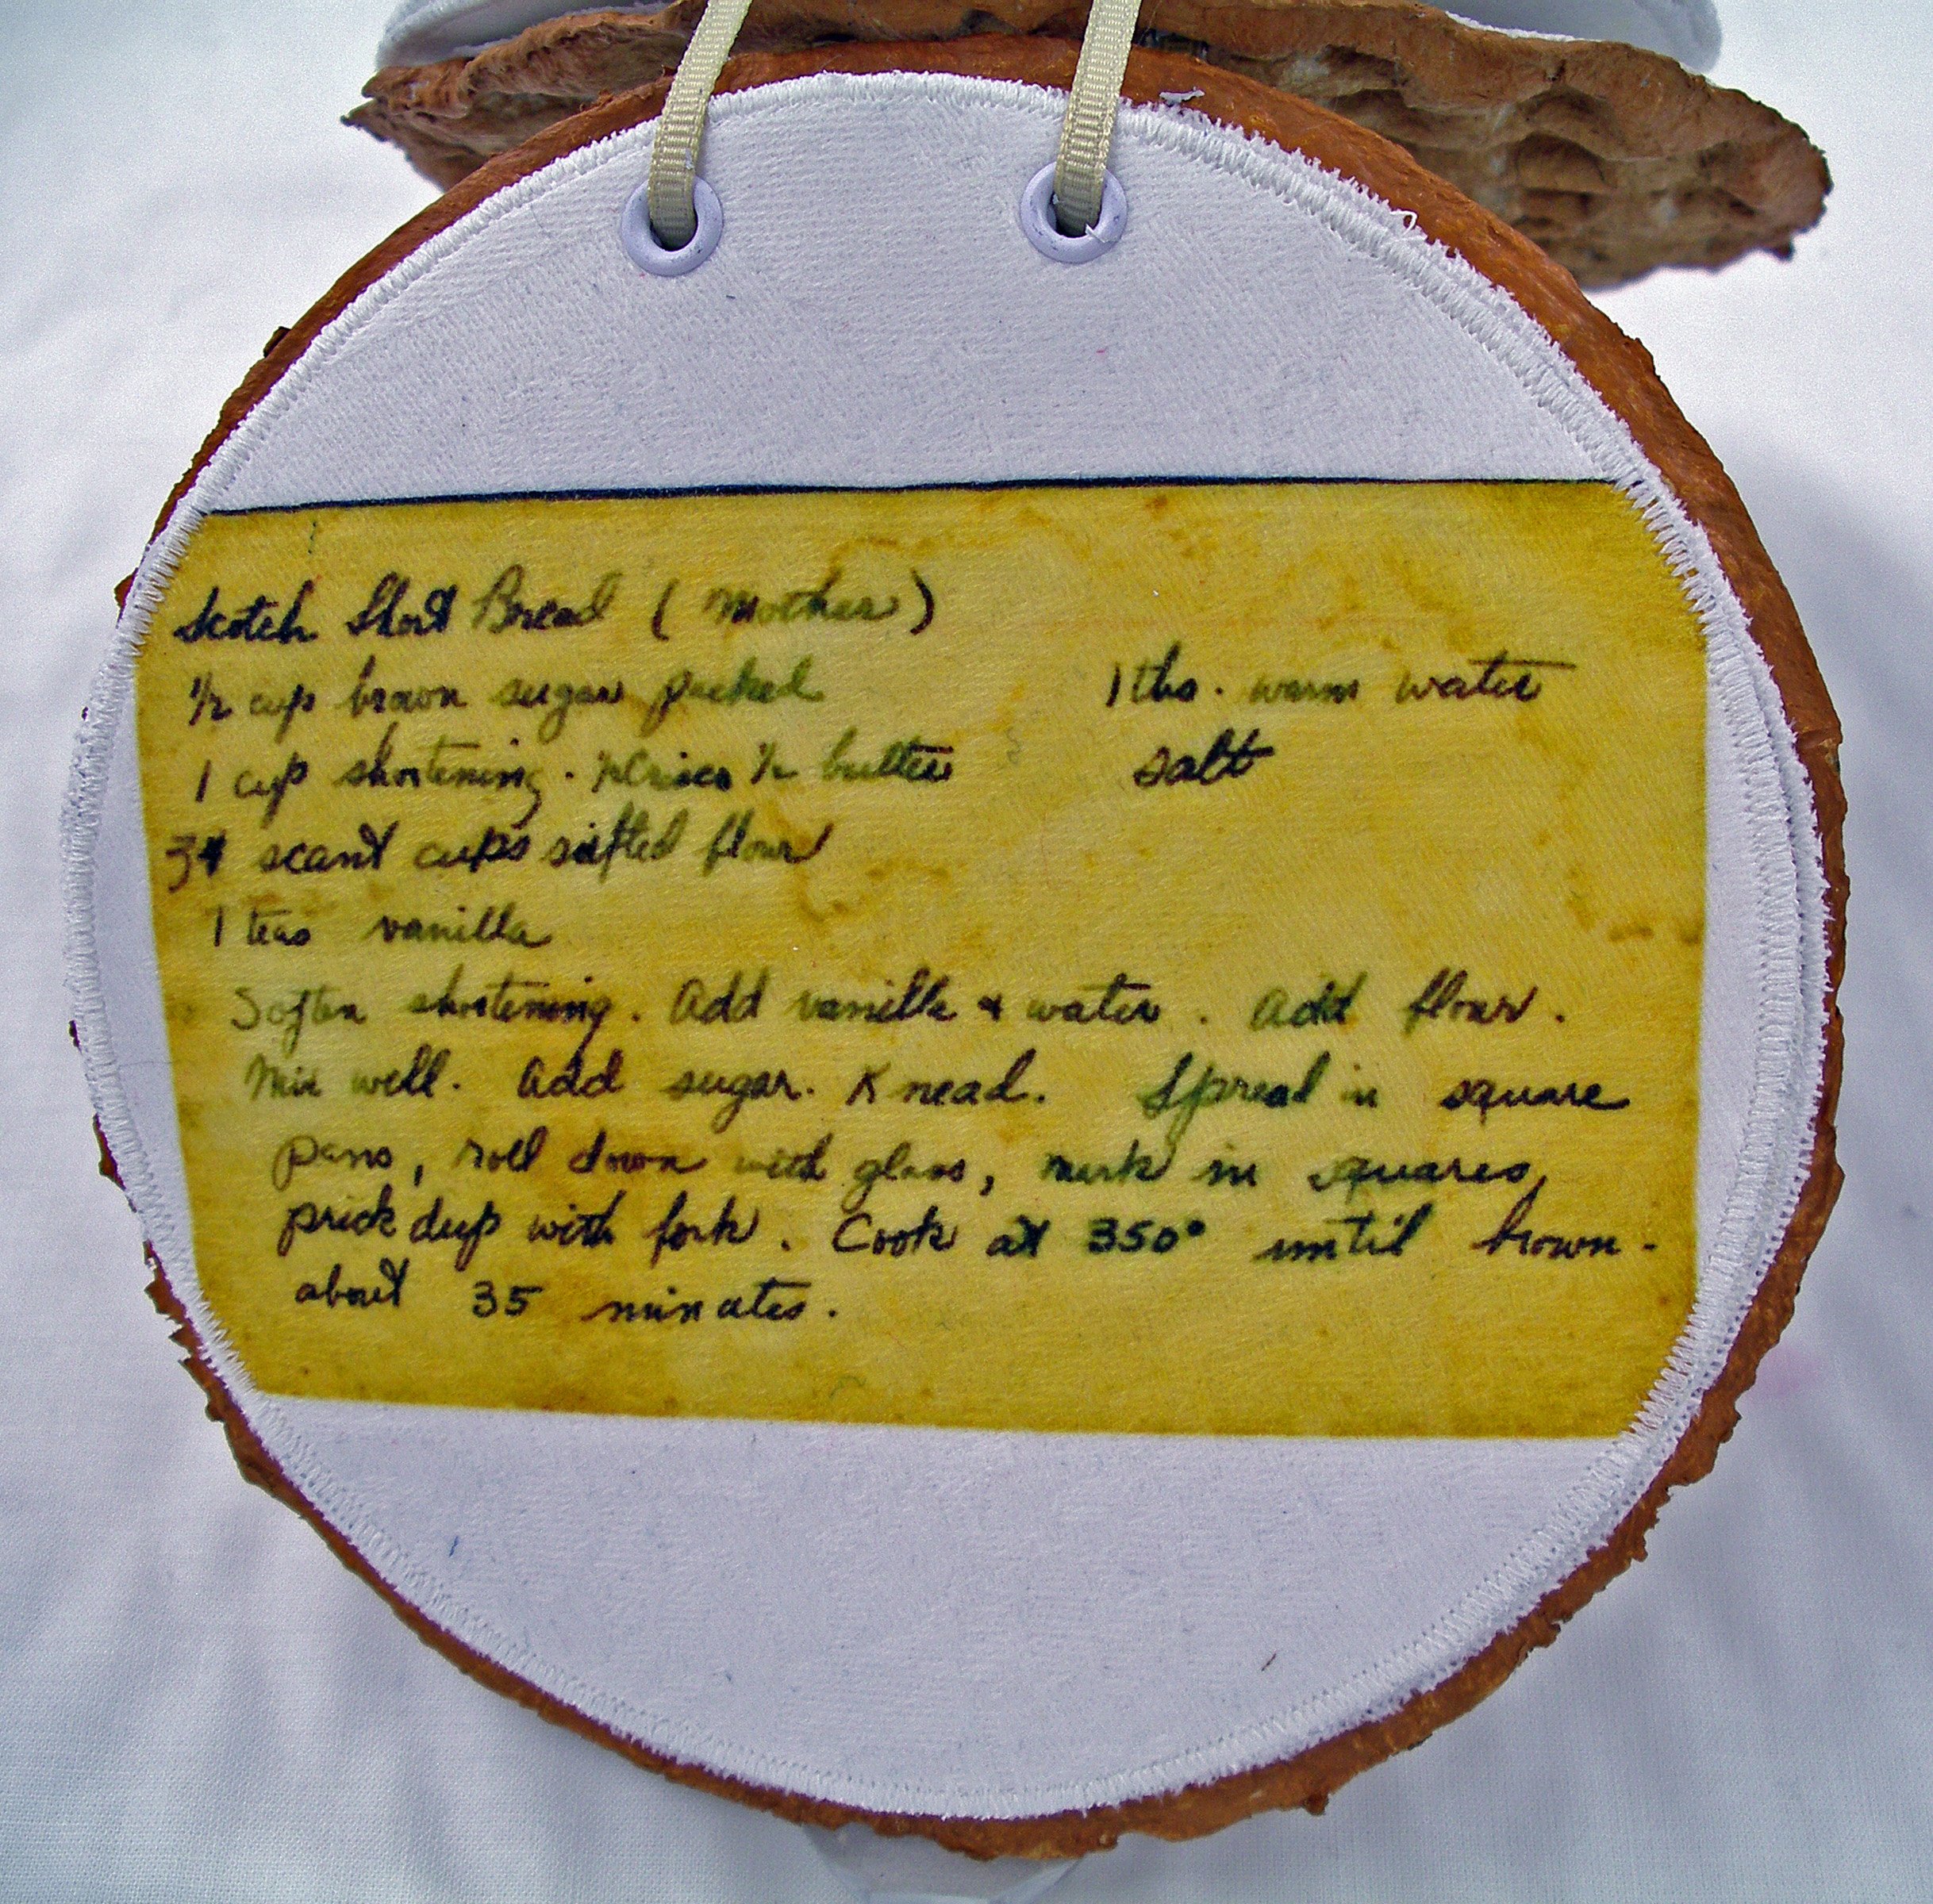 Scotch Short Bread (Mother)
1/2 cup brown sugar packed
1 cup shortening. 1/2 Crisco 1/2 butter
scant cups sifted flour
1 teas vanilla
1 tbs. warm water
salt
Soften shortening. Add vanilla & water. Add flour.
Mix well. Add sugar. Knead. Spread in square
pans, roll down with glass, mark in squares,
prick deep with fork. Cook at 350° until brown -
about 35 minutes.